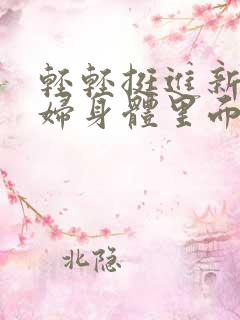 輕輕挺進新
婦身體里而
北隐